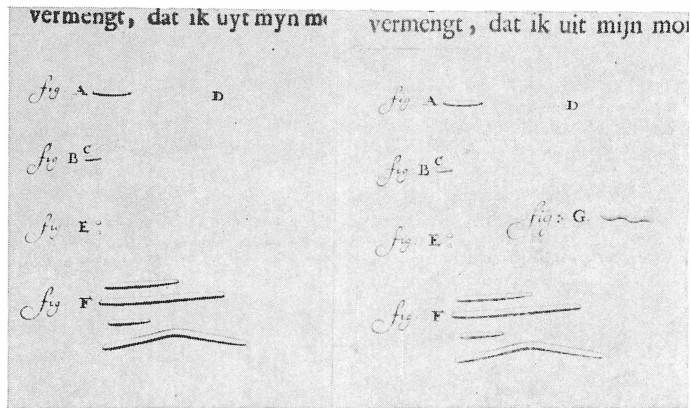 vermengt, dat ik uyt myn
fig A D
fig B C
fig E
fig F
vermengt, dat ik uit mijn
fig A D
fig B C
fig: G
fig: E
fig F